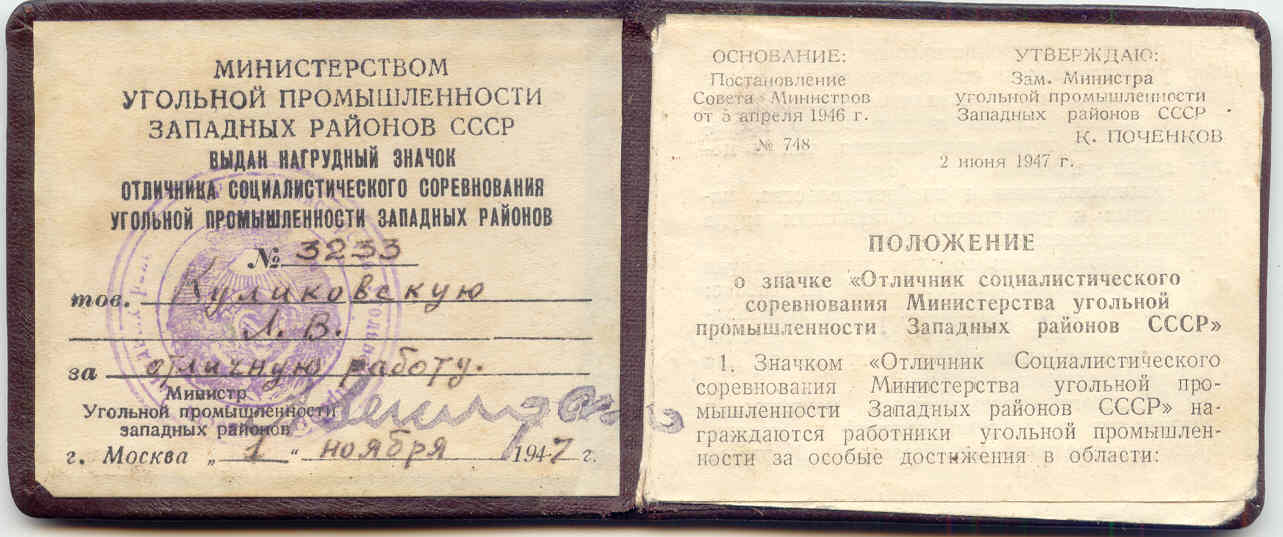 МИНИСТЕРСТВОМ
УГОЛЬНОЙ ПРОМЫШЛЕННОСТИ
ЗАПАДНЫХ РАЙОНОВ СССР
ВЫДАН НАГРУДНЫЙ ЗНАЧОК
ОТЛИЧНИКА СОЦИАЛИСТИЧЕСКОГО СОРЕВНОВАНИЯ
УГОЛЬНОЙ ПРОМЫШЛЕННОСТИ ЗАПАДНЫХ РАЙОНОВ
№ 3233
тов. Куликовскую
Л. В.
за отличную работу.
Министр
Угольной промышленности
западных районов
г. Москва „1“ ноября 1947 г.
ОСНОВАНИЕ:
Постановление
Совета Министров
от 5 апреля 1946 г.
№ 748
УТВЕРЖДАЮ:
Зам. Министра
угольной промышленности
Западных районов СССР
К. ПОЧЕНКОВ
2 июня 1947 г.
ПОЛОЖЕНИЕ
о значке «Отличник социалистического
соревнования Министерства угольной
промышленности Западных районов СССР»
1. Значком «Отличник Социалистического
соревнования Министерства угольной про-
мышленности Западных районов СССР» на-
граждаются работники угольной промышлен-
ности за особые достижения в области: